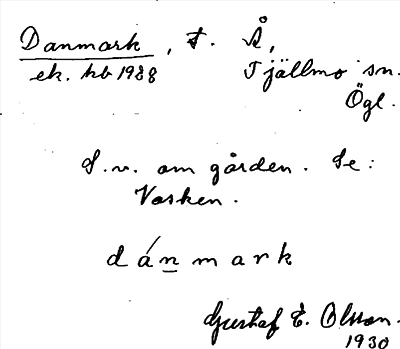 Danmark, t. Å,
ek. kb 1938 Tjällmo sn.
Ögl.
S.v. om gården. Se:
Vasken.
dánmark
Gustaf E. Olsson.
1930